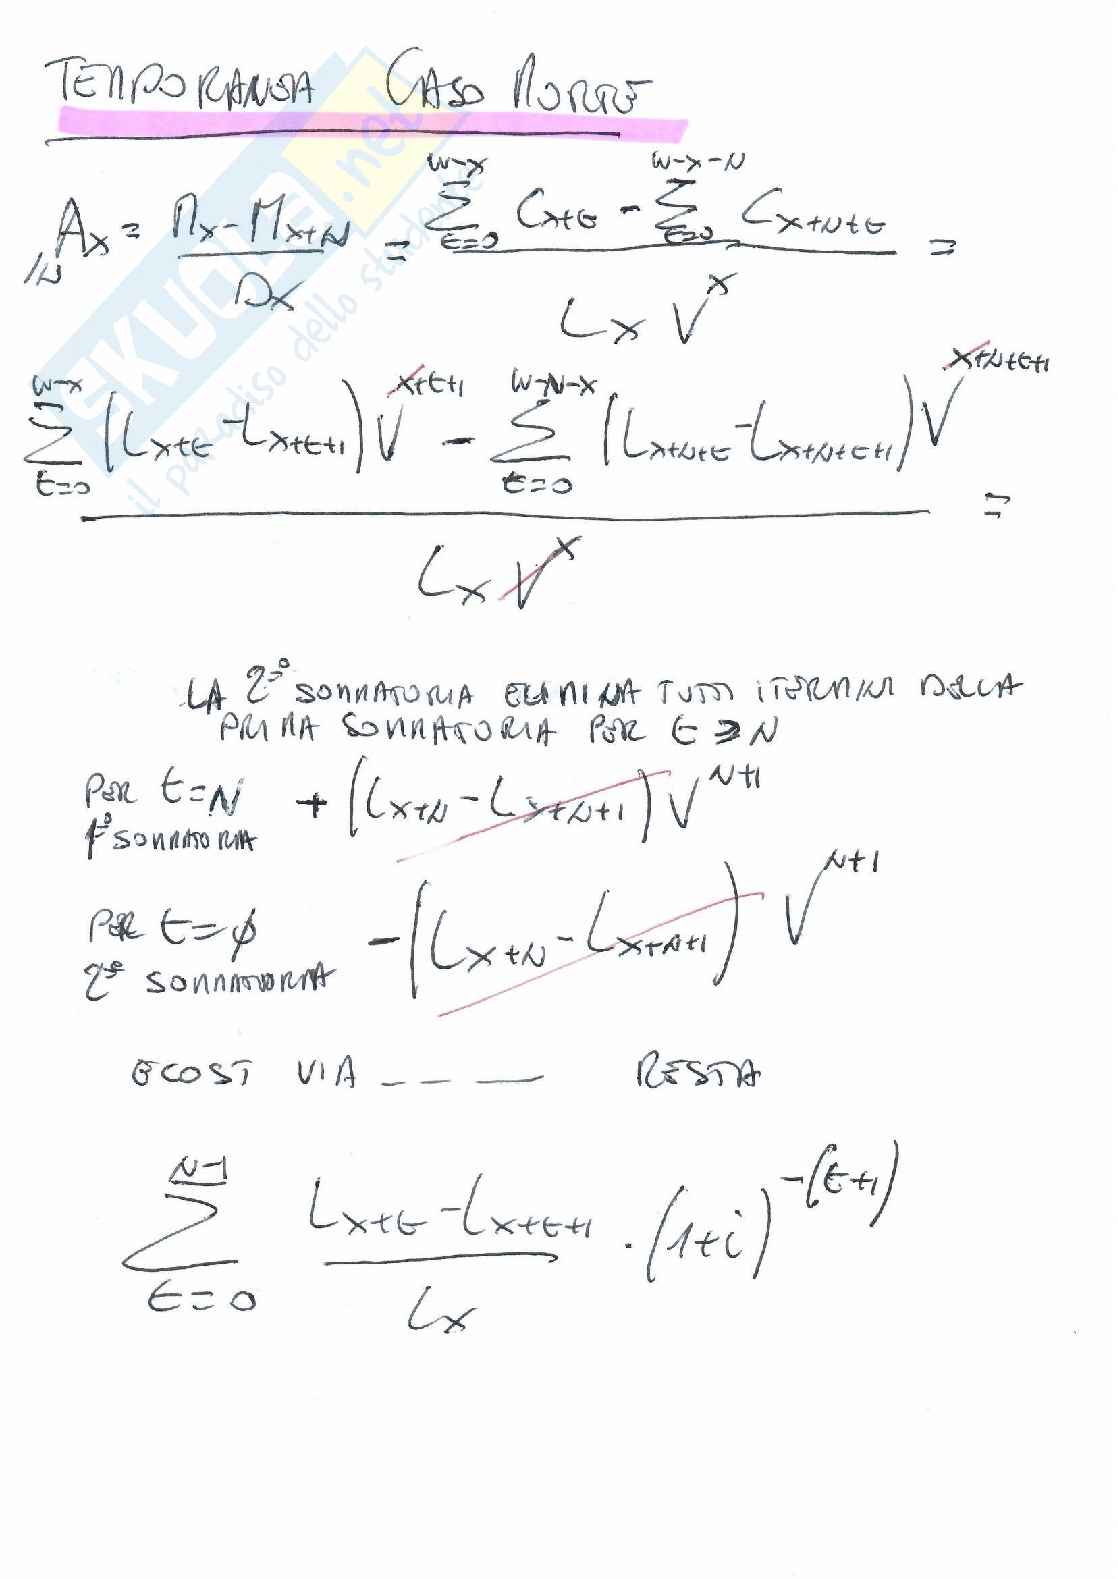 TEMPORANEA CASO MORTE
/N Ax = (Mx - Mx+N) / Dx = (Σ_{t=0}^{W-X} Cx+t - Σ_{t=0}^{W-X-N} Cx+N+t) / (Lx V^x) =
(Σ_{t=0}^{W-X} (Lx+t - Lx+t+1) V^{x+t+1} - Σ_{t=0}^{W-N-X} (Lx+N+t - Lx+N+t+1) V^{x+N+t+1}) / (Lx V^x) =
LA 2° SOMMATORIA ELIMINA TUTTI I TERMINI DELLA
PRIMA SOMMATORIA PER t ≥ N
PER t=N + (Lx+N - Lx+N+1) V^{N+1}
1° SOMMATORIA
PER t=φ - (Lx+N - Lx+N+1) V^{N+1}
2° SOMMATORIA
E COSI VIA _ _ _ RESTA
Σ_{t=0}^{N-1} (Lx+t - Lx+t+1) / Lx · (1+i)^{-(t+1)}
SKUOLA.net
il paradiso dello studente